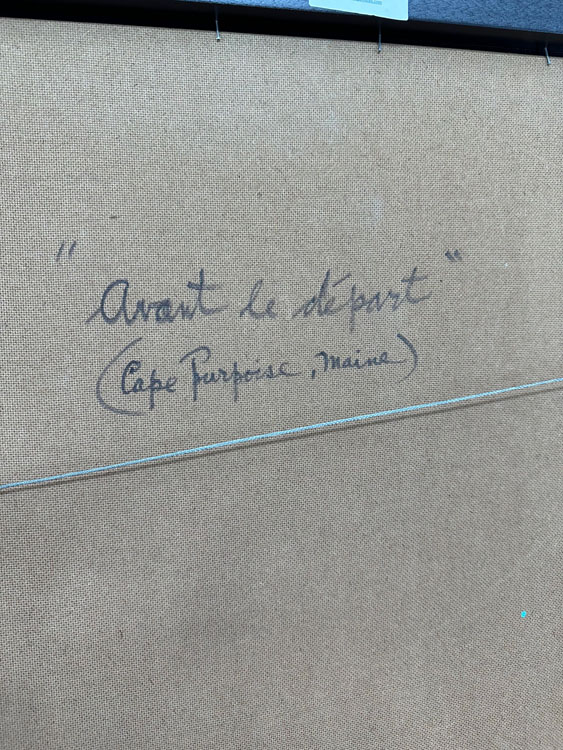 "Avant le départ"
(Cape Purpoise, Maine)